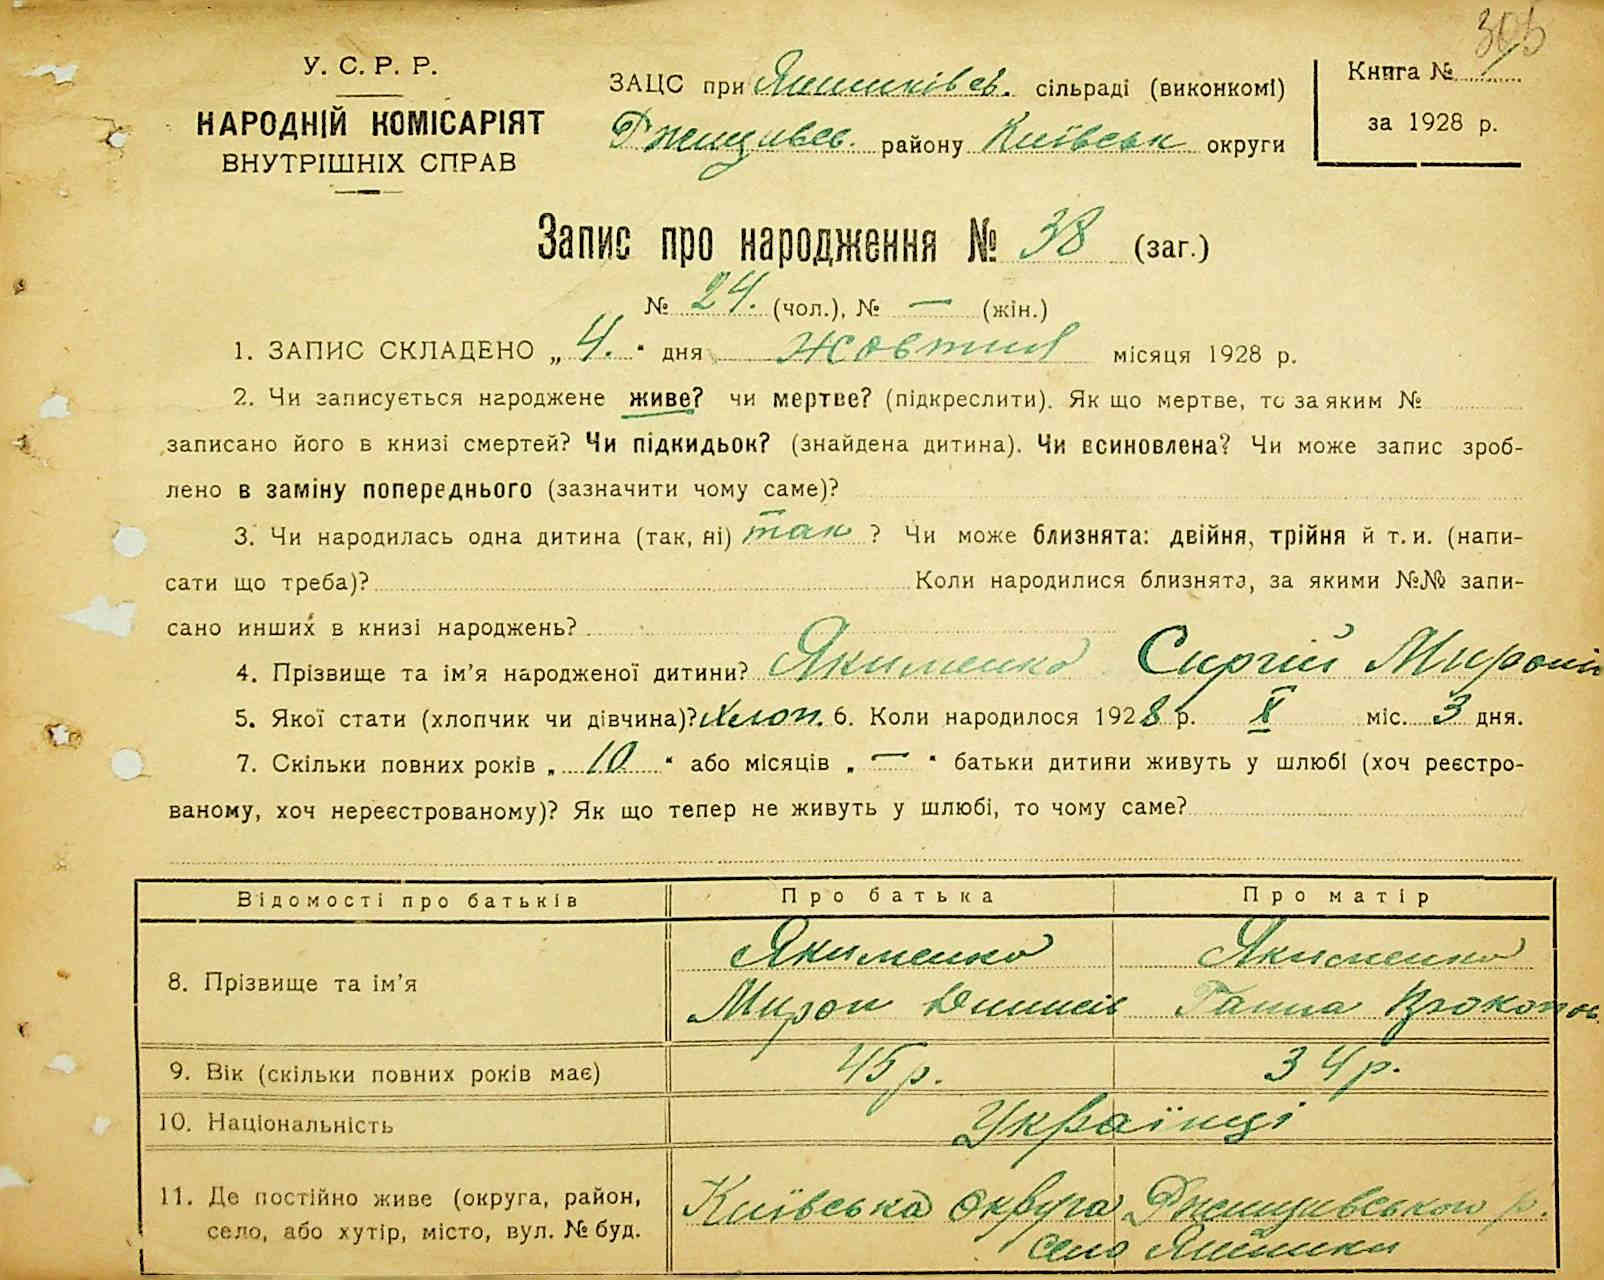 305
У. С. Р. Р.
НАРОДНІЙ КОМІСАРІЯТ
ВНУТРІШНІХ СПРАВ
ЗАЦС при Яшників. сільраді (виконкомі)
Ржищівсь. району Київськ округи
Книга № 1
за 1928 р.
Запис про народження № 38 (заг.)
№ 24. (чол.), № — (жін.)
1. ЗАПИС СКЛАДЕНО „ 4. “ дня жовтня місяця 1928 р.
2. Чи записується народжене живе? чи мертве? (підкреслити). Як що мертве, то за яким №
записано його в книзі смертей? Чи підкидьок? (знайдена дитина). Чи всиновлена? Чи може запис зроб-
лено в заміну попереднього (зазначити чому саме)?
3. Чи народилась одна дитина (так, ні) так ? Чи може близнята: двійня, трійня й т. и. (напи-
сати що треба)? Коли народилися близнята, за якими №№ запи-
сано инших в книзі народжень?
4. Прізвище та ім'я народженої дитини? Якименко Сиргій Миронів
5. Якої стати (хлопчик чи дівчина)? хлоп. 6. Коли народилося 1928 р. X міс. 3 дня.
7. Скільки повних років „ 10 “ або місяців „ — “ батьки дитини живуть у шлюбі (хоч реєстро-
ваному, хоч нереєстрованому)? Як що тепер не живуть у шлюбі, то чому саме?
Відомості про батьків Про батька Про матір
8. Прізвище та ім'я
Якименко Якименко
Мирон Ганна Прокопов.
9. Вік (скільки повних років має) 45 р. 34 р.
10. Національність Українці
11. Де постійно живе (округа, район,
село, або хутір, місто, вул. № буд.
Київська округа Ржищивського р.
село Яшники